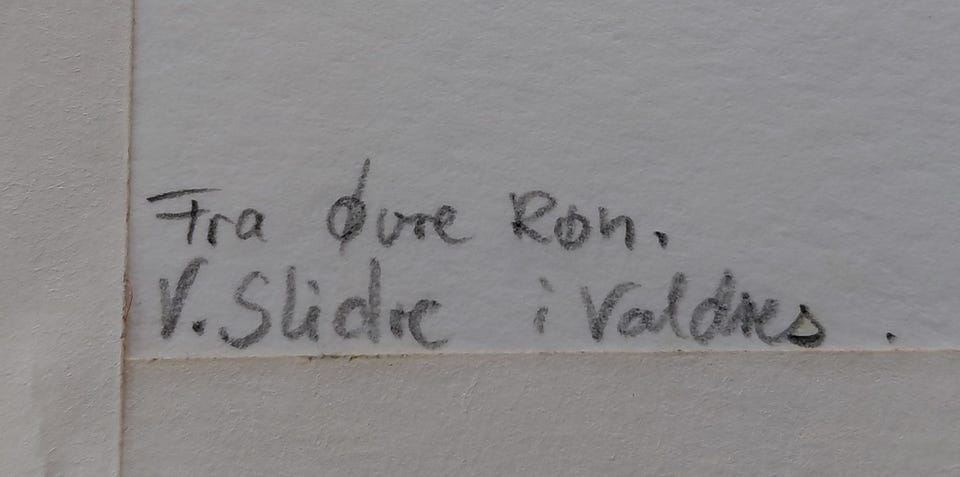 Fra Øvre Røn.
V. Slidre i Valdres.